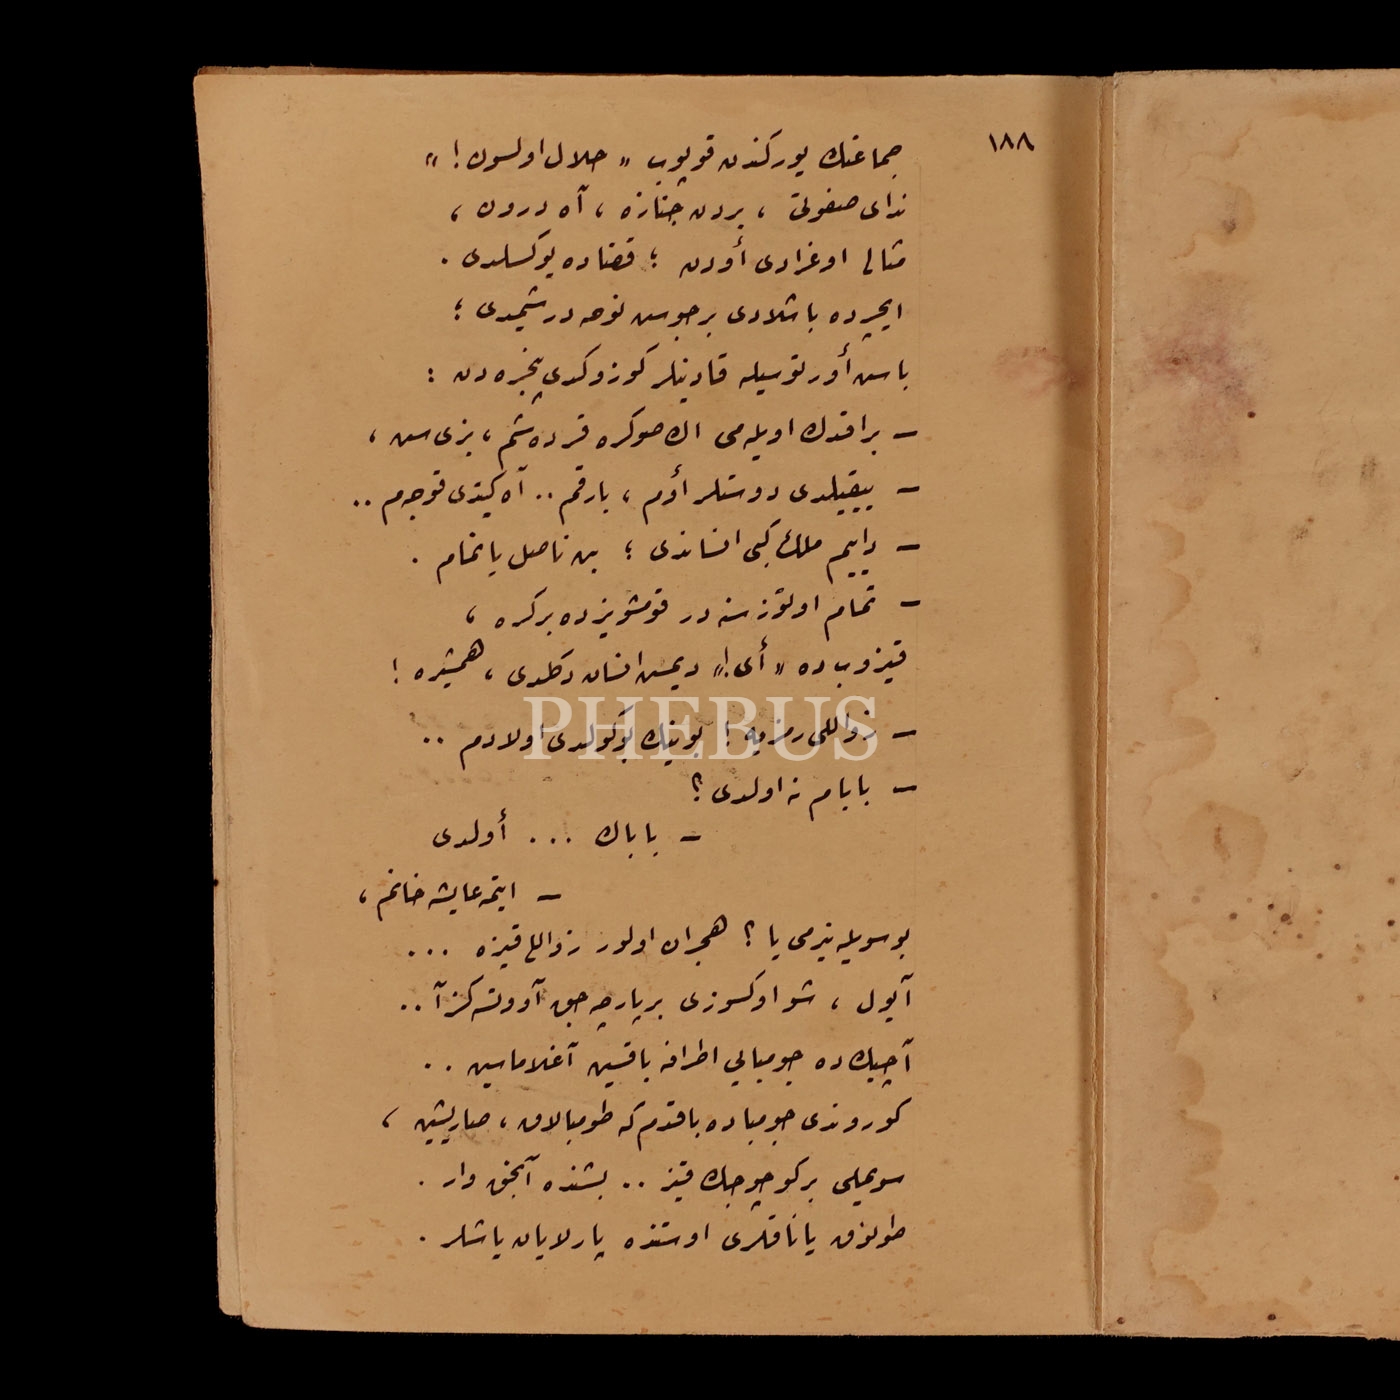 ١٨٨
جماعتك يوركندن قوپوب « حلال اولسون ! »
نداى صفوتى ، بردن جنازه ، آه درون ،
مثالى اوغرادى أودن ؛ فضاده يوكسلدى .
ايچرده باشلادى برجوس نوحه درشيمدى ؛
باس أورتوسيله قادينلر كوزوكدى پنجره دن :
– براقدك اويله مى اڭ صوكره قرده شم ، بزى سن ،
– ييقيلدى دوستلر أوم ، بارقم .. آه كيتدى قوجه م ..
– داييم ملك كبى انساندى ؛ بن ناصل يانمام .
– تمام اوتوز سنه در قومشويز ده بر كره ،
قيزوب ده « أى ! » ديمس انسان دكلدى ، همشيره !
– زواللى رمزيه ! بوينك بوكولدى اولادم ..
PHEBUS
– بابام نه اولدى ؟
– باباڭ ... أولدى
– ايتمه عايشه خانم ،
بو سويله نيرمى يا ؟ هجران اولور زواللى قيزه ...
آيول ، شو اوكسوزى بر پارچه جق آووتسه كز آ ..
آچيڭ ده جومبايى اطرافه باقسين آغلاماسين ..
كوروندى جومباده باقدم كه طومبالاق ، صاريشين ،
سويملى بر كوچوجك قيز .. بشنده آنجق وار .
طولغون ياناقلرى اوستنده پارلايان ياشلر .